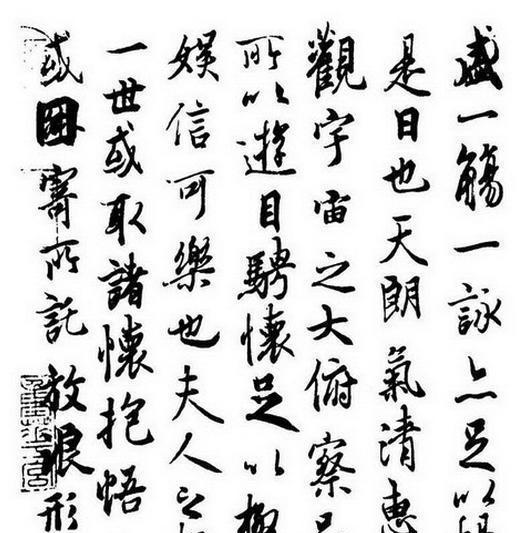 盛一觴一詠亦足以暢
是日也天朗氣清惠
觀宇宙之大俯察品
所以遊目騁懷足以極
娛信可樂也夫人之
一世或取諸懷抱悟
或因寄所託放浪形